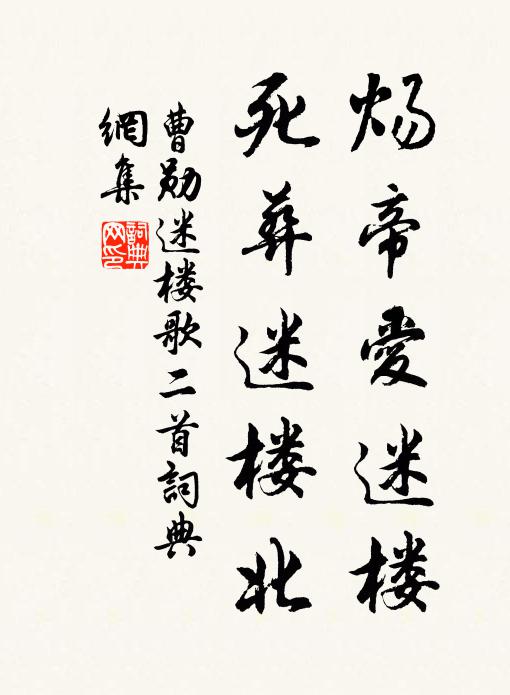 炀帝愛迷楼
死葬迷楼北
曹勋迷楼歌二首詞典
網集
詞典
网印